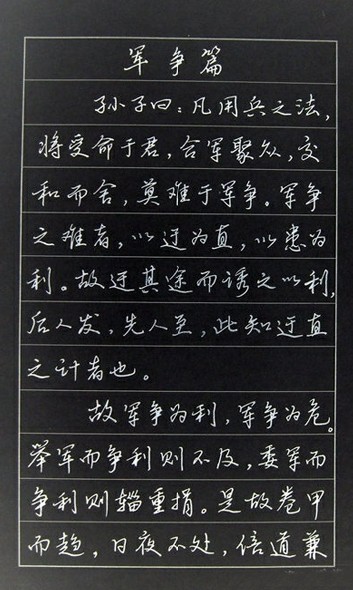 军争篇
孙子曰：凡用兵之法，
将受命于君，合军聚众，交
和而舍，莫难于军争。军争
之难者，以迂为直，以患为
利。故迂其途而诱之以利，
后人发，先人至，此知迂直
之计者也。
故军争为利，军争为危。
举军而争利则不及，委军而
争利则辎重捐。是故卷甲
而趋，日夜不处，倍道兼